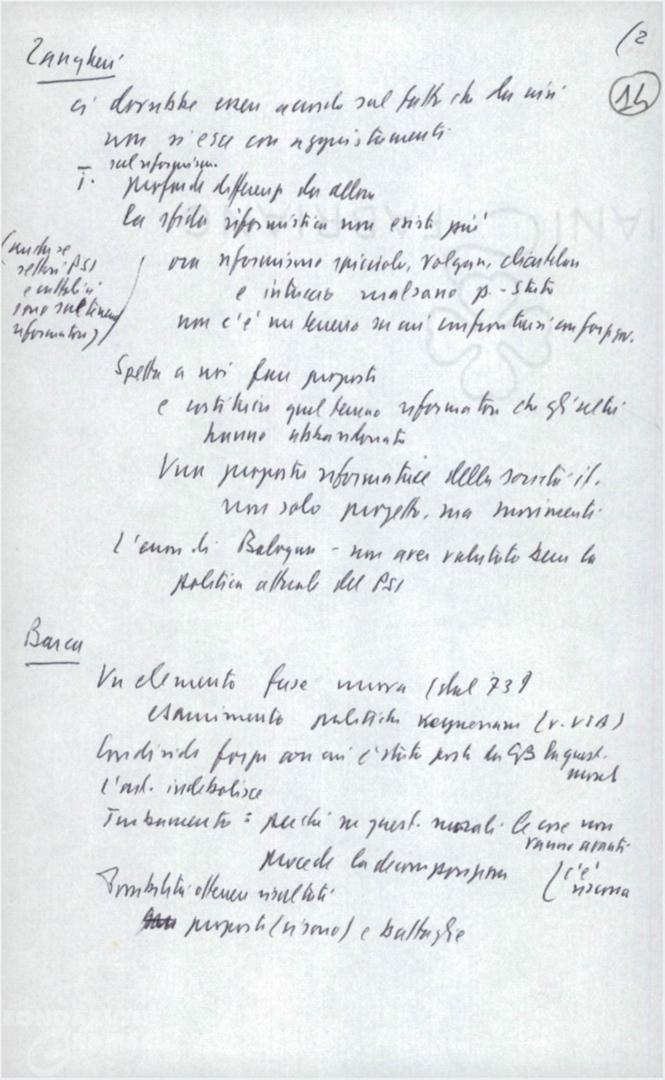 (2
14
Zangheri
ci dovrebbe essere accordo sul fatto che la crisi
non si esce con aggiustamenti
sul riformismo.
I. profonde differenze da allora
la sfida riformistica non esiste più
(anche se
settori PSI
e cattolici
sono sul terreno
riformatore)
ora riformismo spicciolo, volgare, clientelare
e intreccio malsano p. - Stato
non c'è un terreno su cui confrontarsi con forze gov.
Spetta a noi fare proposte
e costituire quel terreno riformatore che gli altri
hanno abbandonato
Una proposta riformatrice della società it.
non solo progetto, ma movimenti
L'errore di Bologna - non aver valutato bene la
politica attuale del PSI
Barca
Un elemento fase nuova (dal 73)
esaurimento politiche keynesiane (v. USA)
Condivido forza con cui è stata posta da GB la quest.
morale
L'ast. indebolisce
Turbamento : perché su quest. morale le cose non
vanno avanti
procede la decomposizione (c'è
risorsa
Possibilità ottenere risultati
proposte (ci sono) e battaglie